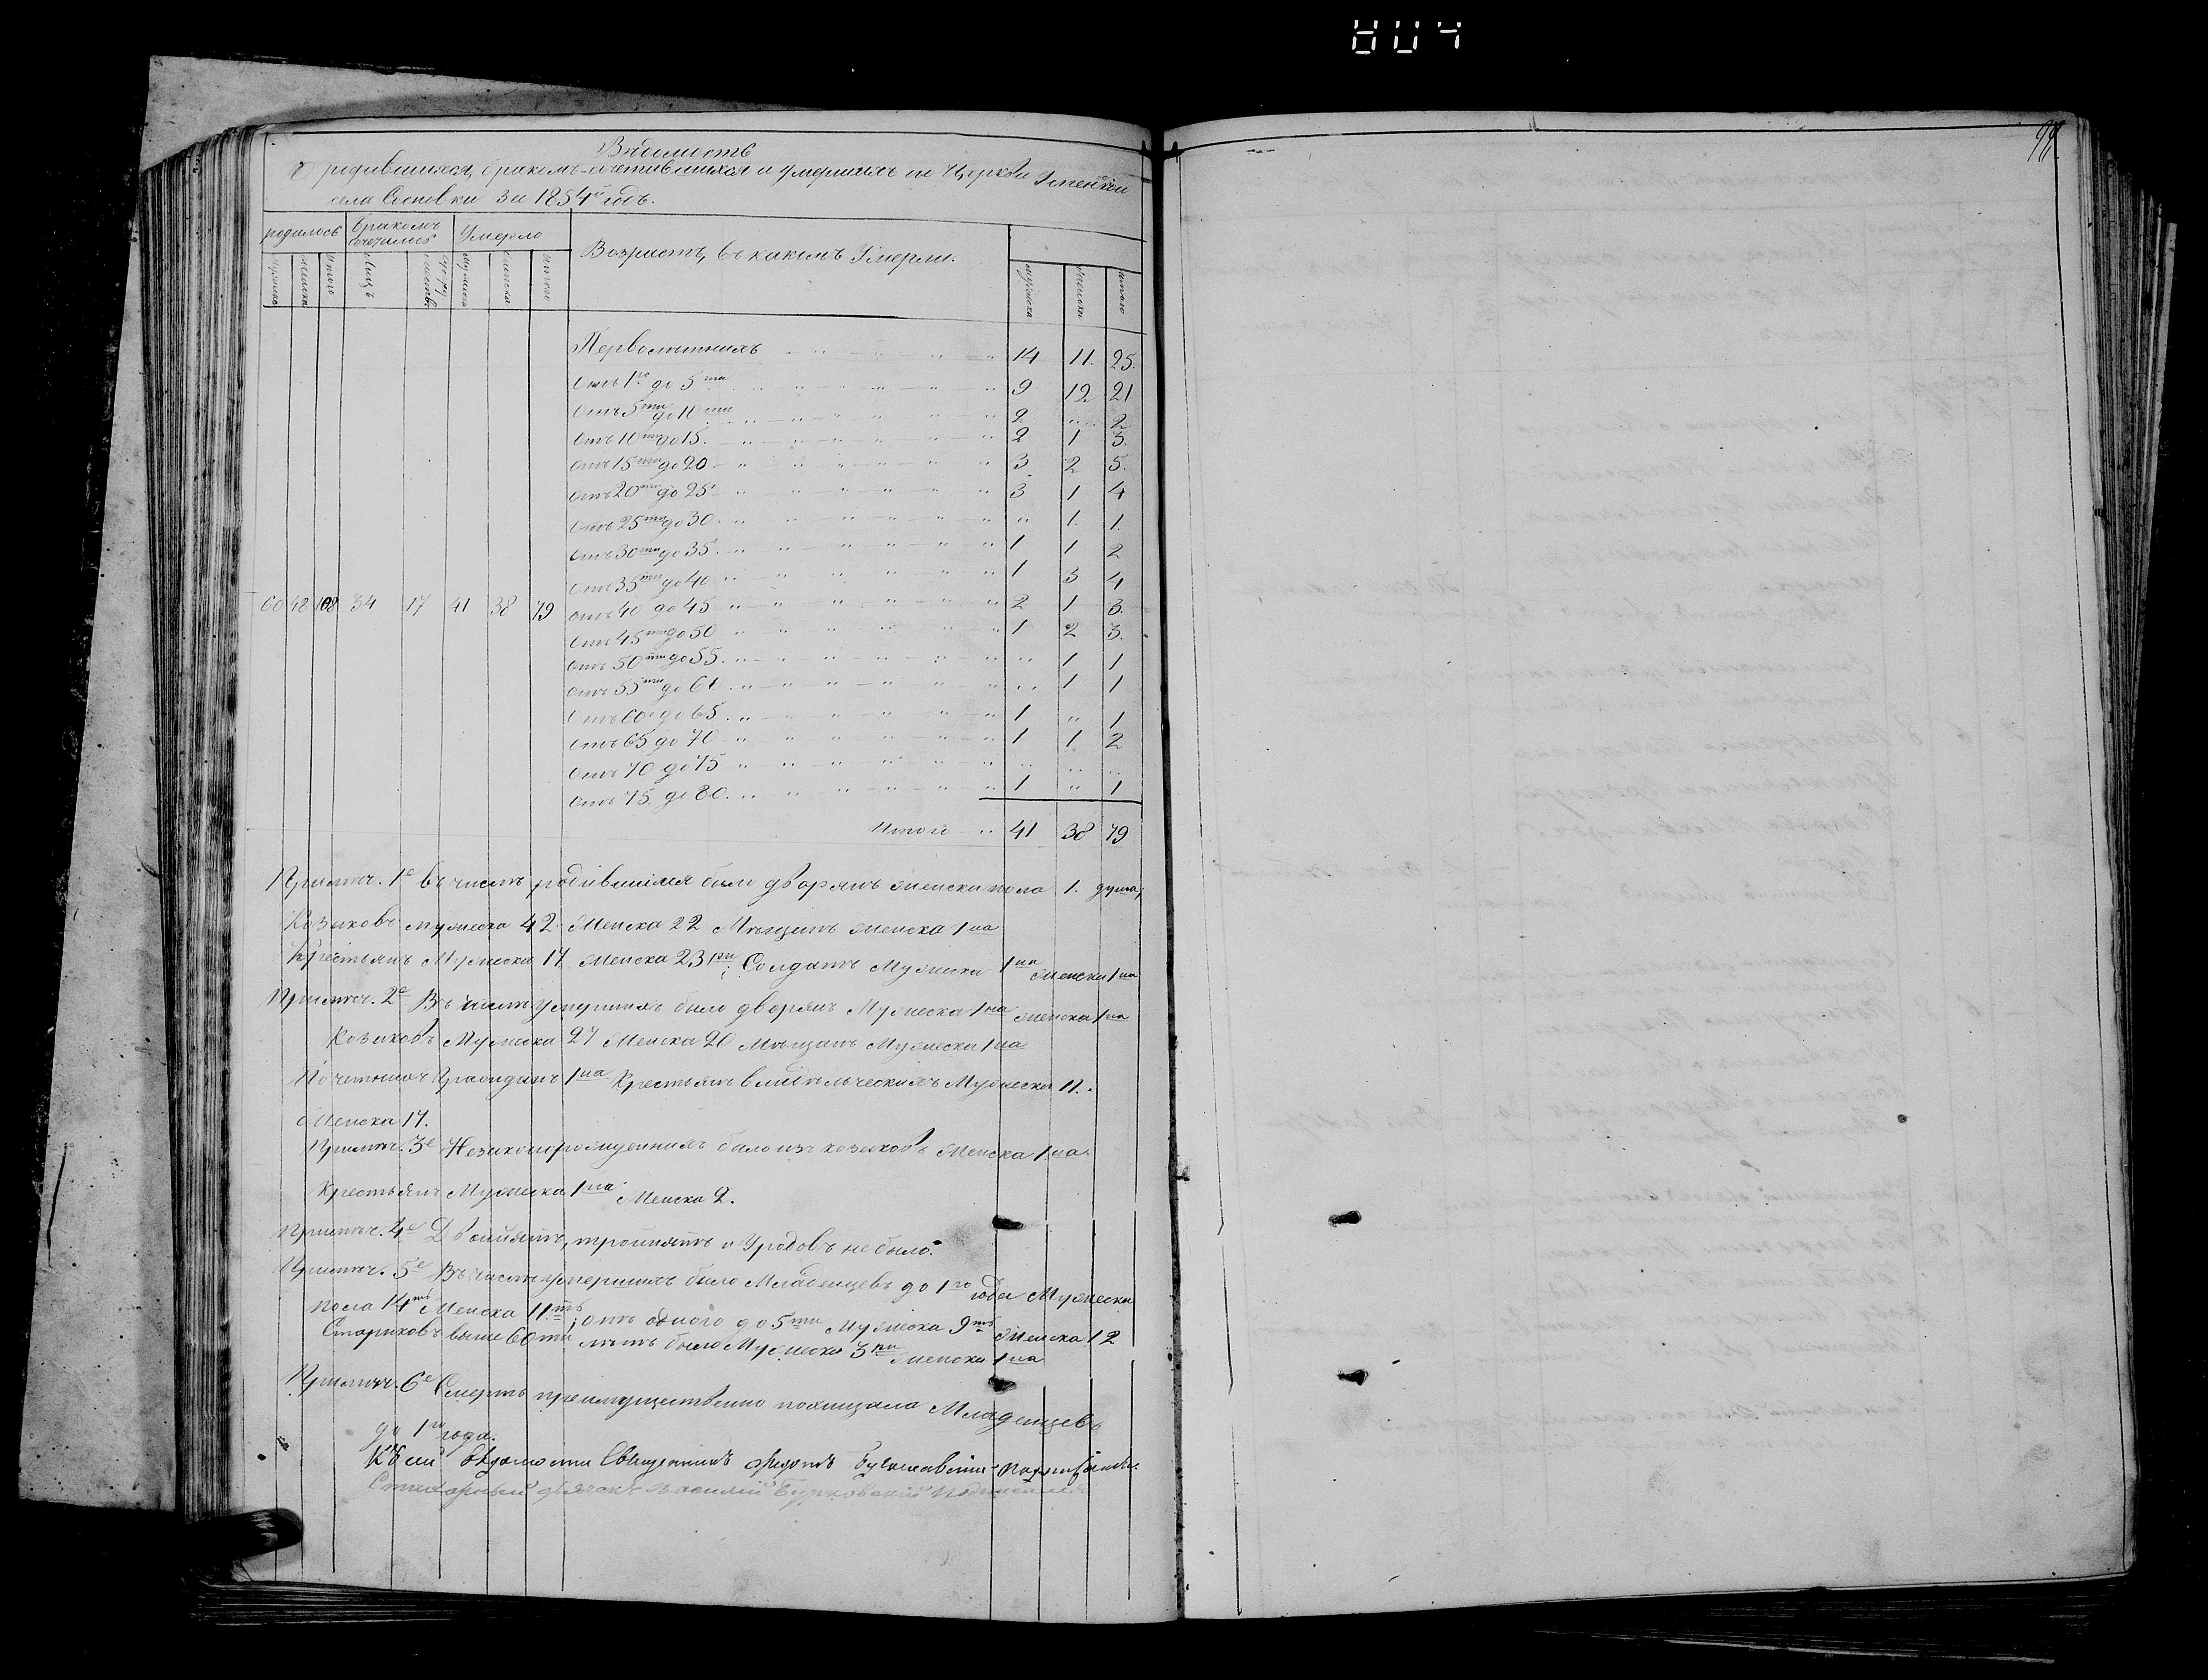 804
99.
Вѣдомость
О родившихся, бракомъ-сочетавшихся и умершихъ по Церкви Успенской
села Сосновки за 1854й годъ.
родилось бракомъ сочеталось Умерло Возрастъ, въ какомъ Умерли.
мужеска женска итого Лицъ супружествъ мужеска женска итого мужеска женска итого
Перволѣтнихъ 14 11. 25.
Отъ 1го до 5ти 9 12 21
Отъ 5ти до 10ти 2 „ 2
Отъ 10ти до 15. 2 1 3.
Отъ 15ти до 20 3 2 5.
Отъ 20ти до 25 3 1 4
Отъ 25ти до 30. „ 1. 1.
Отъ 30ти до 35. 1 1 2
Отъ 35ти до 40 1 3 4
60 48 108 34 17 41 38 79 Отъ 40 до 45 2 1 3.
Отъ 45ти до 50 1 2 3.
Отъ 50ти до 55. „ 1 1
Отъ 55ти до 60. „ 1 1
Отъ 60 до 65. 1 „ 1
Отъ 65 до 70 1 1 2
Отъ 70 до 75 „ „ „
Отъ 75 до 80. 1 „ 1
Итого 41 38 79
Примѣч. 1е въ числѣ родившихся было дворянъ женска пола 1. душа,
Козаковъ мужеска 42 женска 22 Мѣщанъ женска 1на
Крестьянъ Мужеска 17 женска 23три; Солдатъ Мужеска 1на женска 1на
Примѣч. 2е Въ числѣ умершихъ было дворянъ Мужеска 1на женска 1на
Козаковъ Мужеска 27 Женска 20 Мѣщанъ Мужеска 1на
Почетныхъ Гражданъ 1на Крестьянъ владѣльческихъ Мужеска 11.
Женска 17.
Примѣч. 3е Незаконнорожденныхъ было изъ козаковъ Женска 1на.
Крестьянъ Мужеска 1на Женска 2.
Примѣч. 4е Двойнятъ, тройнятъ и Уродовъ не было.
Примѣч. 5е Въ числѣ умершихъ было Младенцевъ до 1го года Мужеска
пола 14ть Женска 11ть; отъ одного до 5ти Мужеска 9ть Женска 12
Стариковъ выше 60ти лѣтъ было Мужеска 3ри женска 1на
Примѣч. 6е Смерть преимущественно похищала Младенцевъ
до 1го года.
Къ сей вѣдомости Священникъ подписался
Стихарный дьячокъ Василій Бурковскій подписался